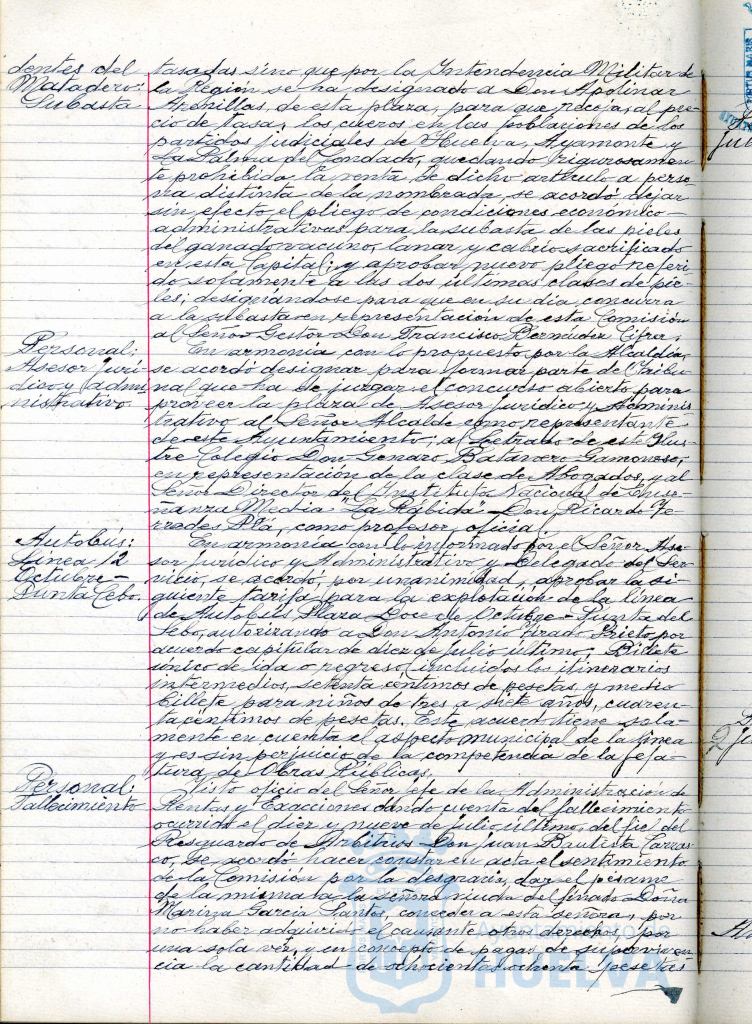 dentes del
Matadero:
Subasta
tasadas sino que por la Intendencia Militar de
la Región se ha designado a Don Apolinar
Arenillas, de esta plaza, para que recoja, al pre-
cio de tasa, los cueros en las poblaciones de los
partidos judiciales de Huelva, Ayamonte y
La Palma del Condado, quedando rigurosamen-
te prohibida la venta de dicho artículo a perso-
na distinta de la nombrada, se acordó dejar
sin efecto el pliego de condiciones económico-
administrativas para la subasta de las pieles
del ganado vacuno, lanar y cabrío sacrificado
en esta Capital; y aprobar nuevo pliego referi-
do solamente a las dos últimas clases de pie-
les; designándose para que en su día concurra
a la subasta en representación de esta Comisión
al Señor Gestor Don Francisco Bermúdez Cifre.
Personal:
Asesor Jurí-
dico y Admi-
nistrativo
En armonía con lo propuesto por la Alcaldía,
se acordó designar para formar parte de Tribu-
nal que ha de juzgar el concurso abierto para
proveer la plaza de Asesor Jurídico y Adminis-
trativo al Señor Alcalde como representante
de este Ayuntamiento; al Letrado de este Ilus-
tre Colegio Don Genaro Batanero Gamonoso,
en representación de la clase de Abogados, y al
Señor Director del Instituto Nacional de Ense-
ñanza Media "La Rábida" Don Ricardo Te-
rrades Plá, como profesor oficial.
Autobús:
Línea 12
Octubre-
Punta Cebo.
En armonía con lo informado por el Señor Ase-
sor Jurídico y Administrativo y Delegado del Ser-
vicio, se acordó, por unanimidad, aprobar la si-
guiente tarifa para la explotación de la línea
de Autobús Plaza Doce de Octubre - Punta del
Sebo, autorizando a Don Antonio Tirado Prieto por
acuerdo capitular de diez de julio último; Billete
único de ida o regreso, incluidos los itinerarios
intermedios, setenta céntimos de pesetas, y medio
billete para niños de tres a siete años, cuaren-
ta céntimos de pesetas. Este acuerdo tiene sola-
mente en cuenta el aspecto municipal de la línea
y es sin perjuicio de la competencia de la Jefa-
tura de Obras Públicas.
Personal:
Fallecimiento
Visto oficio del Señor Jefe de la Administración de
Rentas y Exacciones dando cuenta del fallecimiento
ocurrido el diez y nueve de julio último, del fiel del
Resguardo de Arbitrios Don Juan Bautista Carras-
co, se acordó hacer constar en acta el sentimiento
de la Comisión por la desgracia, dar el pésame
de la misma a la señora viuda del finado Doña
Marina García Santos, conceder a esta señora, por
no haber adquirido el causante otros derechos, por
una sola vez, y en concepto de pagas de superviven-
cia la cantidad de ochocientas ochenta pesetas
HUELVA